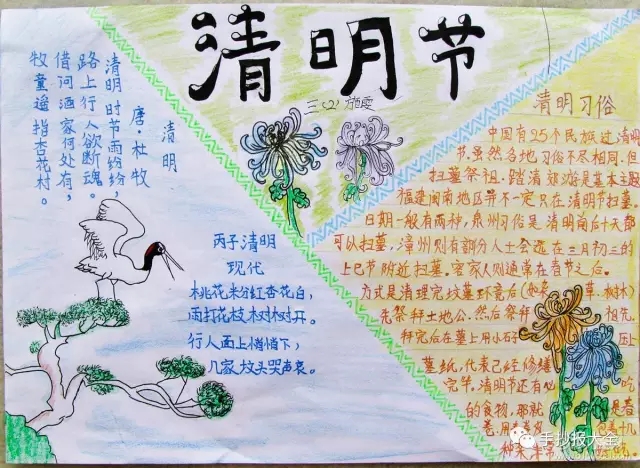 清明节
三(2)
清明
唐·杜牧
清明时节雨纷纷，
路上行人欲断魂。
借问酒家何处有，
牧童遥指杏花村。
丙子清明
现代
桃花粉红杏花白，
雨打花枝树树开。
行人面上悄悄下，
几家坟头哭声哀。
清明习俗
中国有25个民族过清明
节，虽然各地习俗不尽相同，但
扫墓祭祖、踏清郊游是基本主题
福建闽南地区并不一定只在清明节扫墓，
日期一般有两种，泉州习俗是清明前后十天都
可以扫墓，漳州则有部分人士会选在三月初三的
上巳节附近扫墓。客家人则通常在春节之后。
方式是清理完坟墓环境后(如
草、树木)
先祭拜土地公，然后祭拜
祖先。
拜完后在墓上用小石
压上
墓纸，代表已经修缮
完毕，清明节还有必
吃
的食物，那就
是春
卷，用
几
种菜
手抄报大全